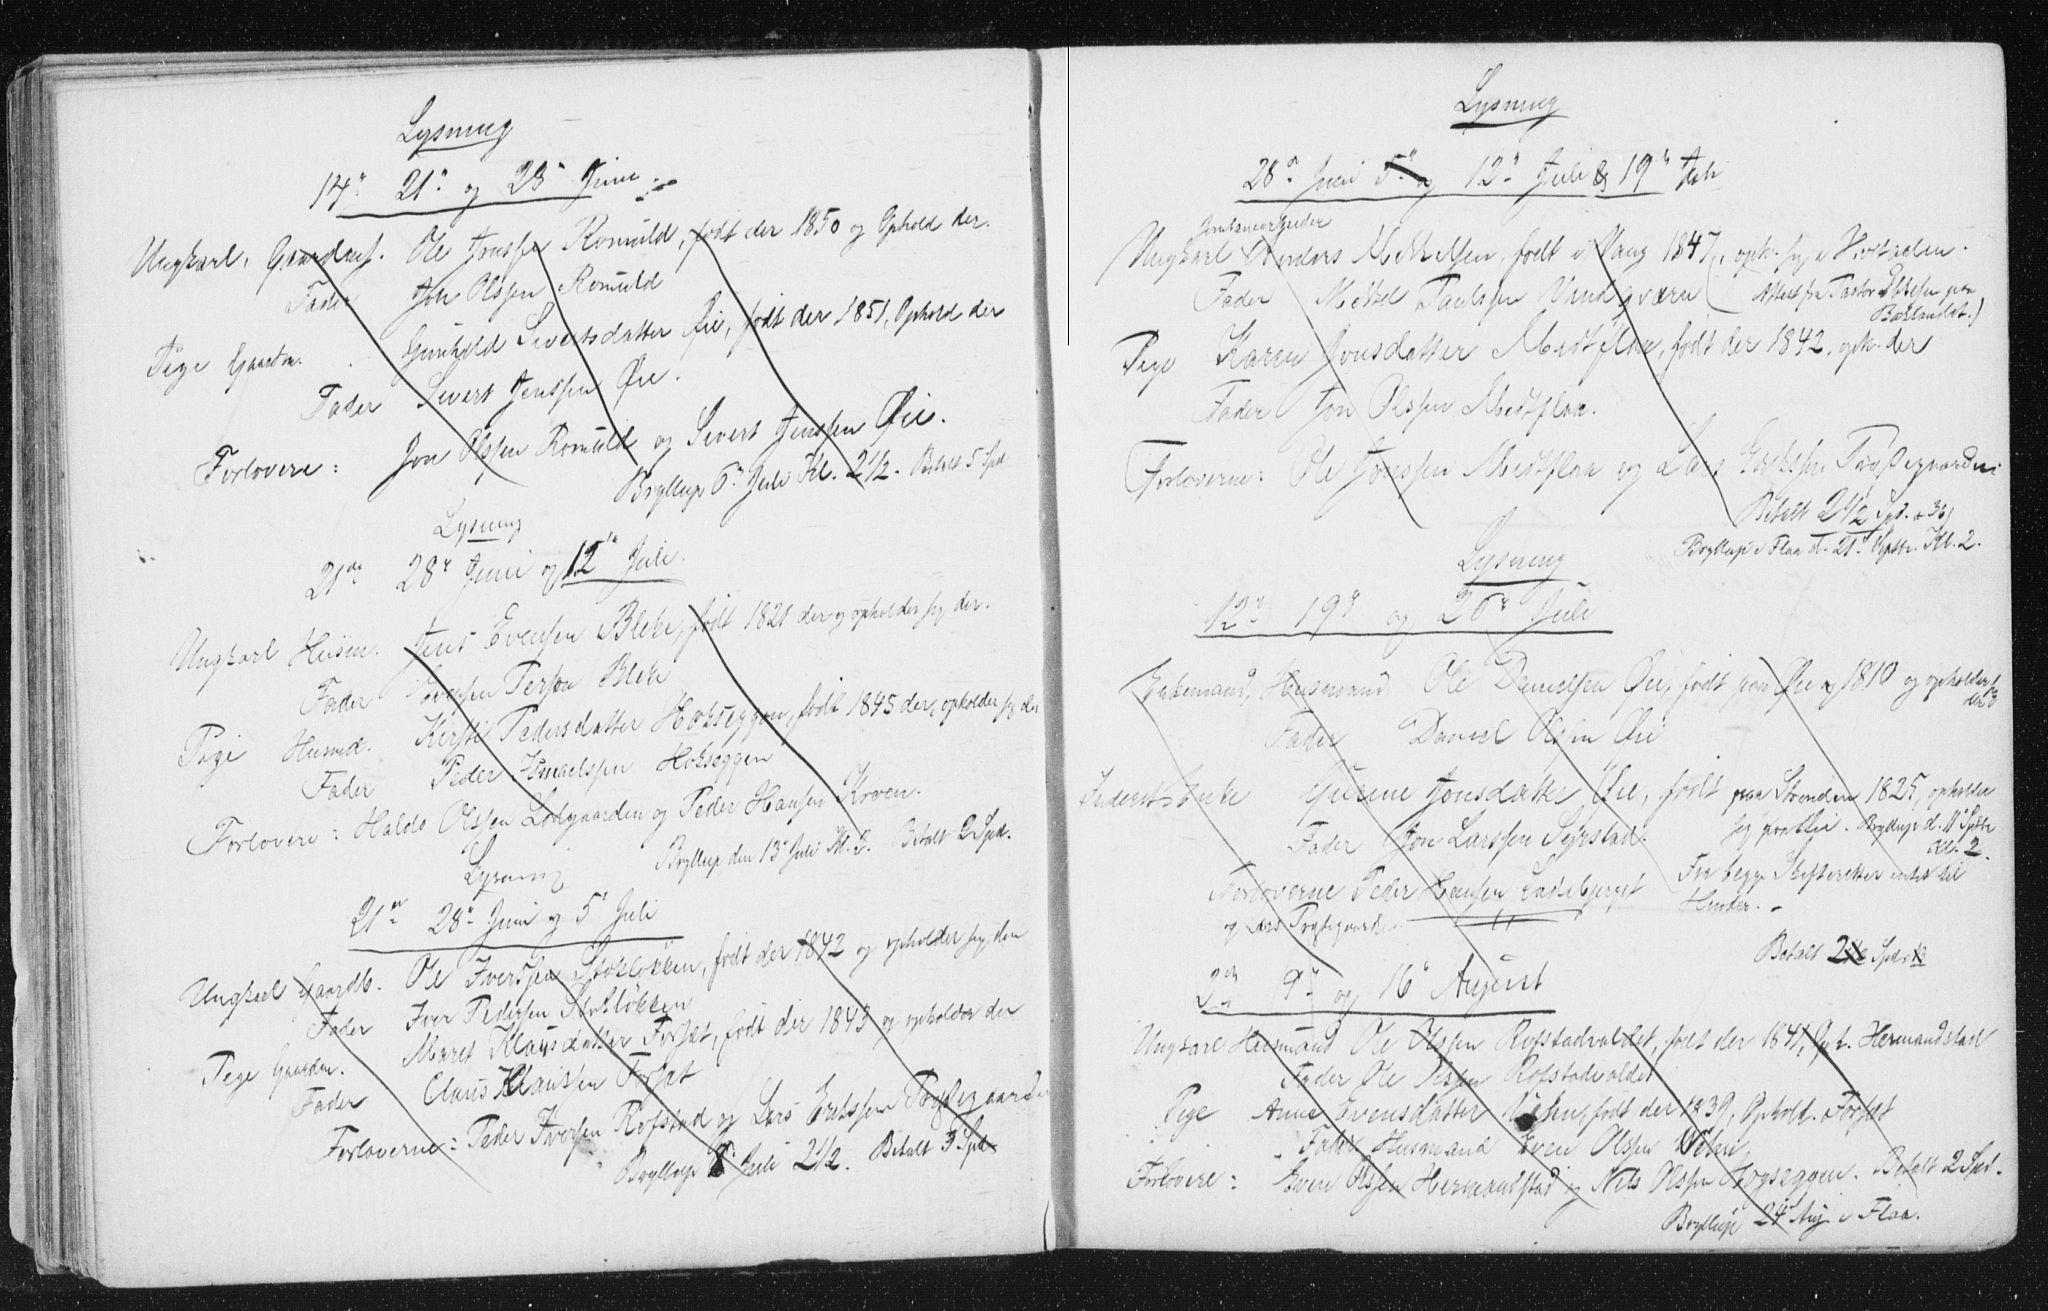 Lysning
14de 21de og 28de Juni
Ungkarl, Gaardmf. Ole Jonssen Romuld, født der 1850 og Ophold der.
Fader Jon Olssen Romuld
Pige Gaardm. Gunhild Sivertsdatter Øie, født der 1851, Ophold der
Fader Sivert Jenssen Øie.
Forlovere: Jon Olssen Romuld og Sivert Jenssen Øie.
Bryllup 6te Juli Kl. 2 1/2. Betalt 5 Spd
Lysning
21de 28de Juni og 12te Juli.
Ungkarl Husm. Jens Evensen Bleke, født 1821 der og opholder sig der.
Fader Evensen Persøn Blek
Pige Husmd. Kirsti Pedersdatter Hokseggen, født 1845 der, opholder sig der
Fader Peder Hokseggen
Forlovere: Haldo Olssen Lodgaarden og Peder Hansen Kroen.
Bryllup den 13de Juli Kl. 2. Betalt 2 Spd.
Lysning
21de 28de Juni og 5te Juli
Ungkarl Gaardb. Ole Iverssen Storløkken, født der 1842 og opholder sig der
Fader Iver Pedersen Storløkken
Pige Gaardm. Maret Klausdatter Forsæt, født der 1843 og opholder der
Fader Claus Klaussen Forsæt
Forloverne: Peder Iversen Rofstad og Lars Erikssen Prøstegaarden
Bryllup Juli 2 1/2. Betalt 3 Spd
Lysning
28de Juni 5te og 12te Juli & 19de Juli
Jernbanearbeider
Ungkarl Anders Mekkelsen, født i Vang 1847, oph. sig i Hovstaden.
Fader Mekkel Paulssen Vindqværn (Attest fra Pastor Ibsen paa
Baklandet.)
Pige Karen Jonsdatter Midtflaa, født der 1842, oph. der
Fader Jon Olssen Midtflaa.
Forloverne: Ole Jonssen Midtflaa og Lars Erikssen Prøstegaarden
Betalt 2 1/2 Spd. + 36
Bryllup i Flaa d. 21de Septr. Kl. 2.
Lysning
12te 19de og 26de Juli
Enkemand, Husmand Ole Danielsen Øie, født paa Øie 1810 og opholder sig
der
Fader Daniel Olsen Øie
Inderst Enke Gurine Jonsdatter Øie, født paa Strinden 1825, opholder
sig paa Øie. Bryllup d. 11te Septr
Kl. 2.
Fader Jon Larssen Sejrstad.
Fra begge Skifteretter intet til
Hinder.
Forloverne Peder Hansen Ladebjerget
og Lars Prøstegaarden
Betalt 2 Spd
2den 9de og 16de August
Ungkarl Husmand Ole Olssen Rofstadvaldet, født der 1841, Oph. Hermandstad
Fader Ole Olssen Rofstadvaldet
Pige Anne Evensdatter født der 1839, Ophold. Forsæt
Fader Husmand Even Olssen
Forlovere: Even Olssen Hermandstad og Nils Olssen Hogseggen. Betalt 2 Spd.
Bryllup 24de Aug i Flaa.